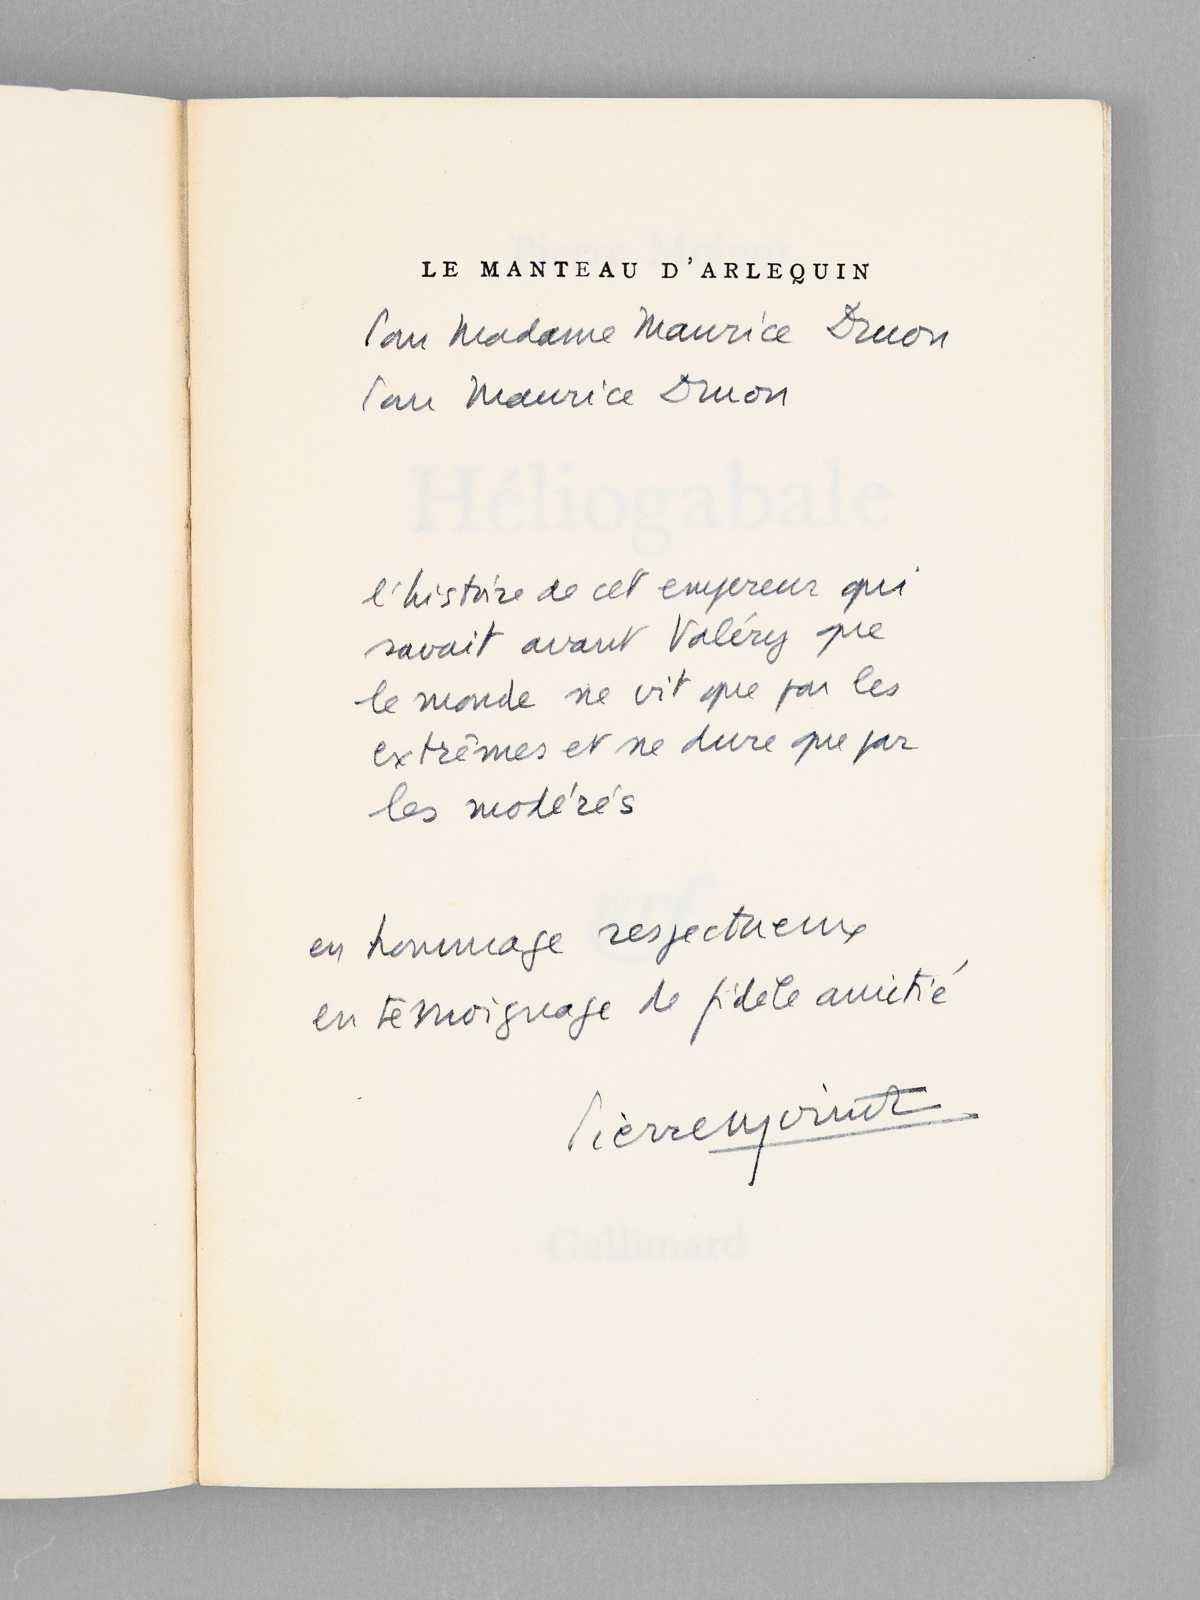 Pierre Moinot
LE MANTEAU D'ARLEQUIN
Pour Madame Maurice Druon
Pour Maurice Druon
Héliogabale
l'histoire de cet empereur qui
savait avant Valéry que
le monde ne vit que par les
extrêmes et ne dure que par
les modérés
nrf
en hommage respectueux
en témoignage de fidèle amitié
Pierre Moinot
Gallimard